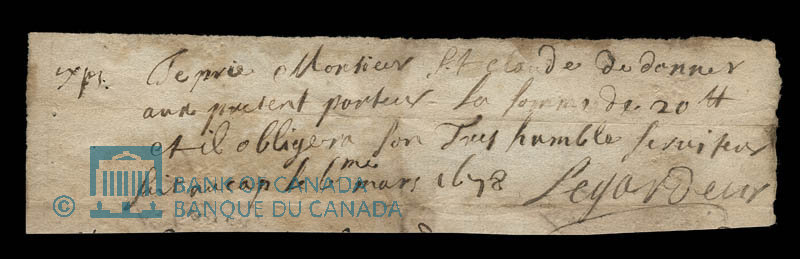 Je prie Monsieur St Claude de donner
aux present porteur La somme de 20 tt
et il obligera son Tres humble serviteur
cap le 6me mars 1678 Legardeur
© BANK OF CANADA
BANQUE DU CANADA